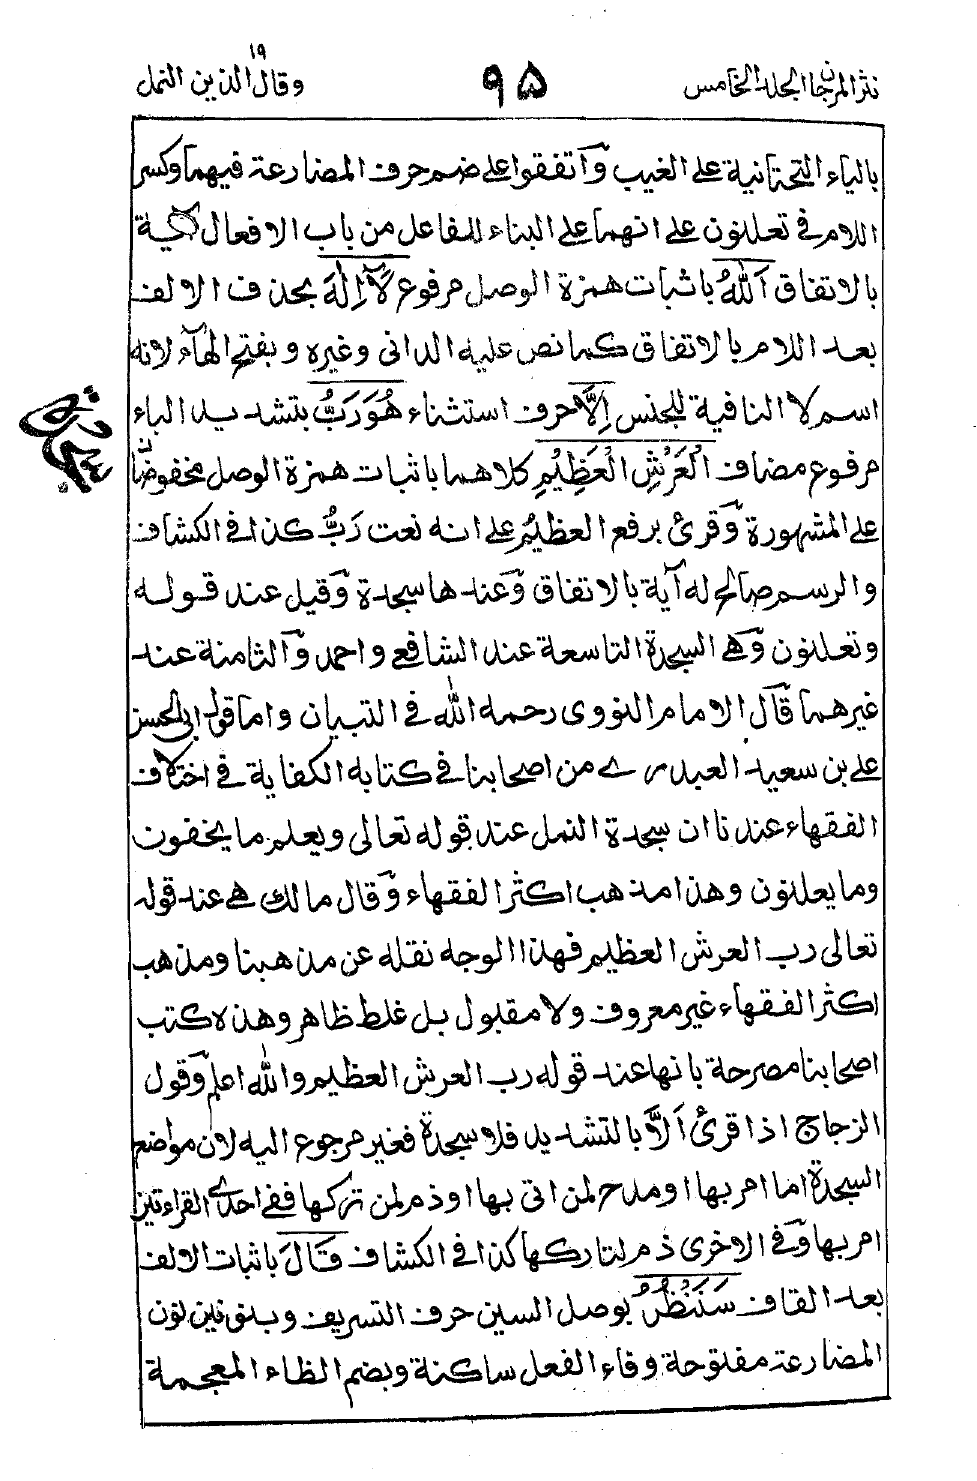 نثر المرجان الجلد الخامس
٩٥
وقال الذين ١٩ النمل
بالياء التحتانية على الغيب وآتفقوا على ضم حرف المضارعة فيهما وكسر
اللام في تعلنون على انهما على البناء للفاعل من باب الافعال آية
بالاتفاق اَللّٰهُ باثبات همزة الوصل مرفوع لَآ اِلٰهَ بحذف الالف
بعد اللام بالاتفاق كما نص عليه الدانى وغيره وبفتح الهآء لانه
اسم لا النافية للجنس اِلَّا حرف استثناء هُوَ رَبُّ بتشديد الباء
مرفوع مضاف الْعَرْشِ الْعَظِيْمِ كلاهما باثبات همزة الوصل مخفوضان
على المشهورة وقرئ برفع العظيمُ على انه نعت رَبُّ كذا في الكشاف
والرسم صالح له آية بالاتفاق وعندها سجدة وقيل عند قوله
وتعلنون وهي السجدة التاسعة عند الشافعي واحمد والثامنة عند
غيرهما قال الامام النووى رحمه الله في التبيان واما قول ابي الحسن
علي بن سعيد العبدري من اصحابنا في كتابه الكفاية في اختلاف
الفقهاء عندنا ان سجدة النمل عند قوله تعالى ويعلم ما يخفون
وما يعلنون وهذا مذهب اكثر الفقهاء وقال مالك هي عند قوله
تعالى رب العرش العظيم فهذا الوجه نقله عن مذهبنا ومذهب
اكثر الفقهاء غير معروف ولا مقبول بل غلط ظاهر وهذه كتب
اصحابنا مصرحة بانها عند قوله رب العرش العظيم والله اعلم وقول
الزجاج اذا قرئ اَلَّا بالتشديد فلا سجدة فغير مرجوع اليه لان مواضع
السجدة اما امر بها او مدح لمن اتى بها او ذم لمن تركها ففي احدى القراءتين
امر بها وفي الاخرى ذم لتاركها كذا في الكشاف قَالَ باثبات الالف
بعد القاف سَنَنْظُرُ بوصل السين حرف التسريف وبنونين نون
المضارعة مفتوحة وفاء الفعل ساكنة وبضم الظاء المعجمة